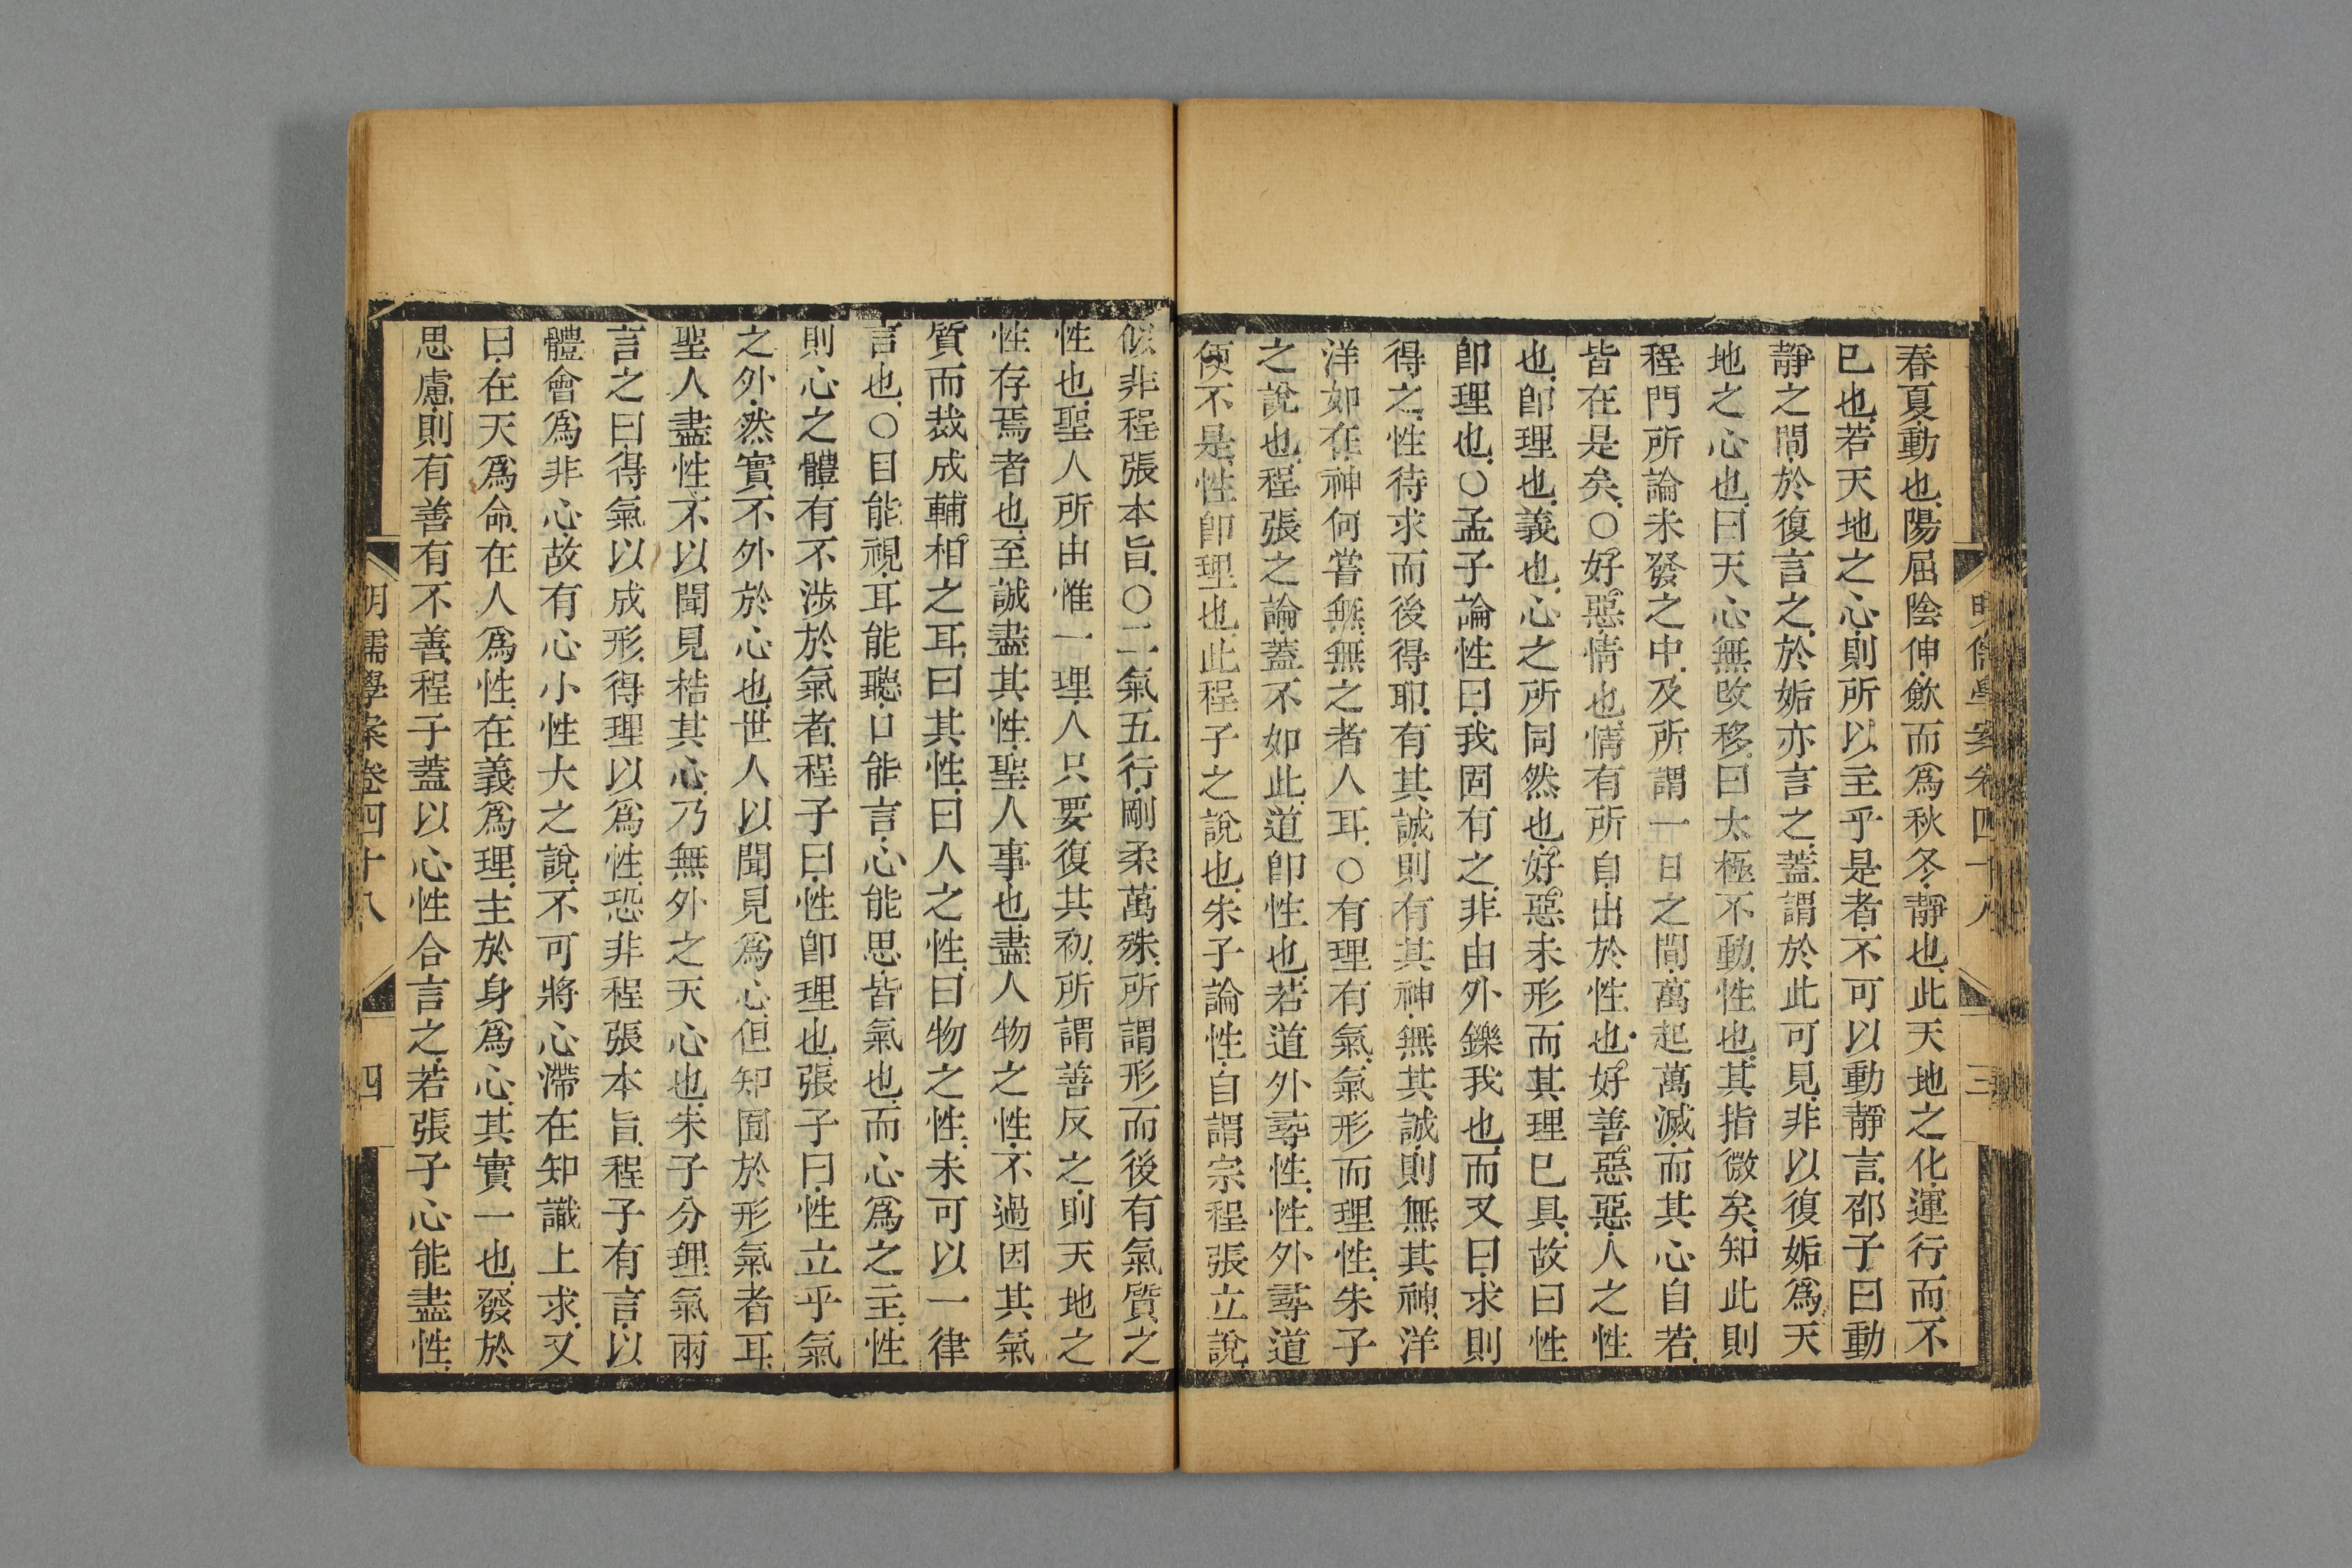 明儒學案卷四十八 三
春夏動也陽屈陰伸歛而爲秋冬靜也此天地之化運行而不
已也若天地之心則所以主乎是者不可以動靜言邵子曰動
靜之間於復言之於姤亦言之蓋謂於此可見非以復姤爲天
地之心也曰天心無改移曰太極不動性也其指微矣知此則
程門所論未發之中及所謂一日之間萬起萬滅而其心自若
皆在是矣○好惡情也情有所自出於性也好善惡惡人之性
也卽理也義也心之所同然也好惡未形而其理已具故曰性
卽理也○孟子論性曰我固有之非由外鑠我也而又曰求則
得之性待求而後得耶有其誠則有其神無其誠則無其神洋
洋如在神何嘗無無之者人耳○有理有氣氣形而理性朱子
之說也程張之論蓋不如此道卽性也若道外尋性性外尋道
便不是性卽理也此程子之說也朱子論性自謂宗程張立說
似非程張本旨○二氣五行剛柔萬殊所謂形而後有氣質之
性也聖人所由惟一理人只要復其初所謂善反之則天地之
性存焉者也至誠盡其性聖人事也盡人物之性不過因其氣
質而裁成輔相之耳曰其性曰人之性曰物之性未可以一律
言也○目能視耳能聽口能言心能思皆氣也而心爲之主性
則心之體有不涉於氣者程子曰性卽理也張子曰性立乎氣
之外然實不外於心也世人以聞見爲心但知囿於形氣者耳
聖人盡性不以聞見梏其心乃無外之天心也朱子分理氣兩
言之曰得氣以成形得理以爲性恐非程張本旨程子有言以
體會爲非心故有心小性大之說不可將心滯在知識上求又
曰在天爲命在人爲性在義爲理主於身爲心其實一也發於
思慮則有善有不善程子蓋以心性合言之若張子心能盡性
明儒學案卷四十八 四